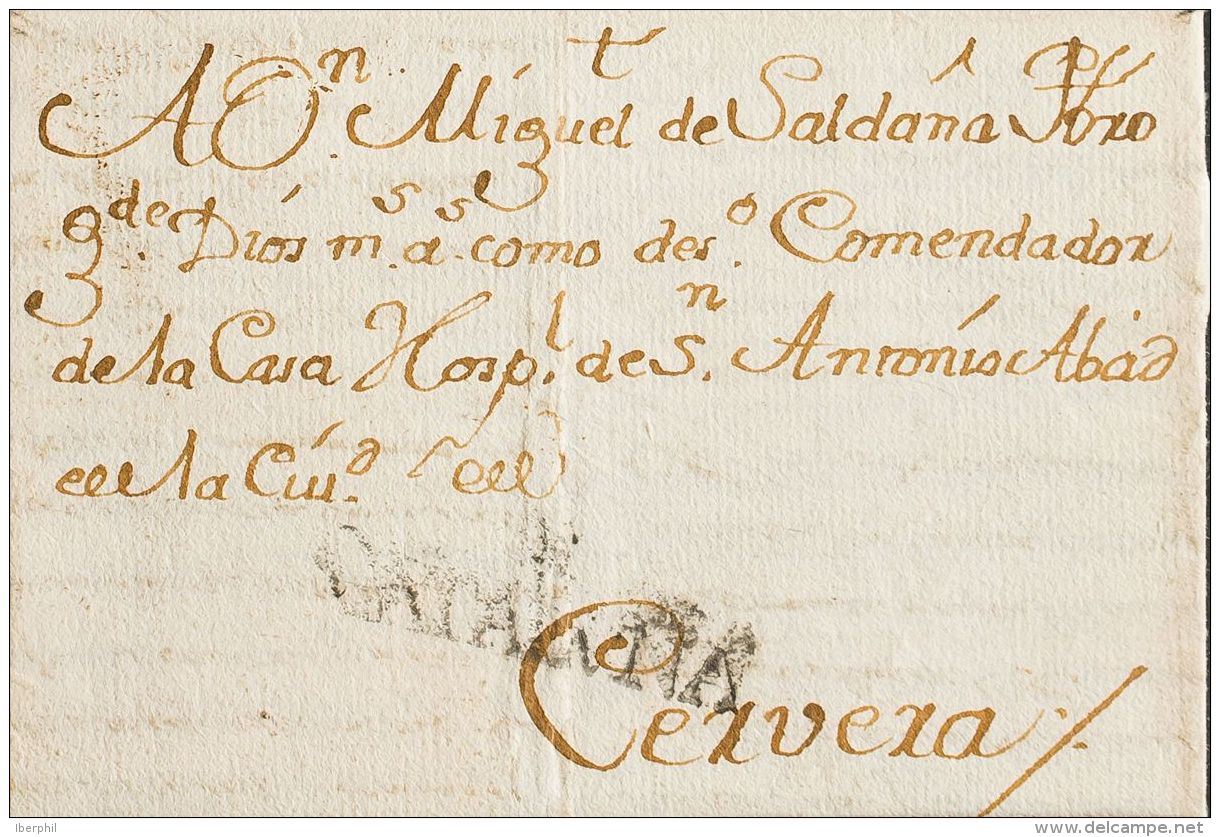 †
A Dn. Miguel de Saldaña Pbro
gde. Dios ms. as. como deso. Comendador
de la Casa Hospl. de Sn. Antonio Abad
de la Ciud. de
CATALUÑA
Cervera
Iberphil
delcampe.net